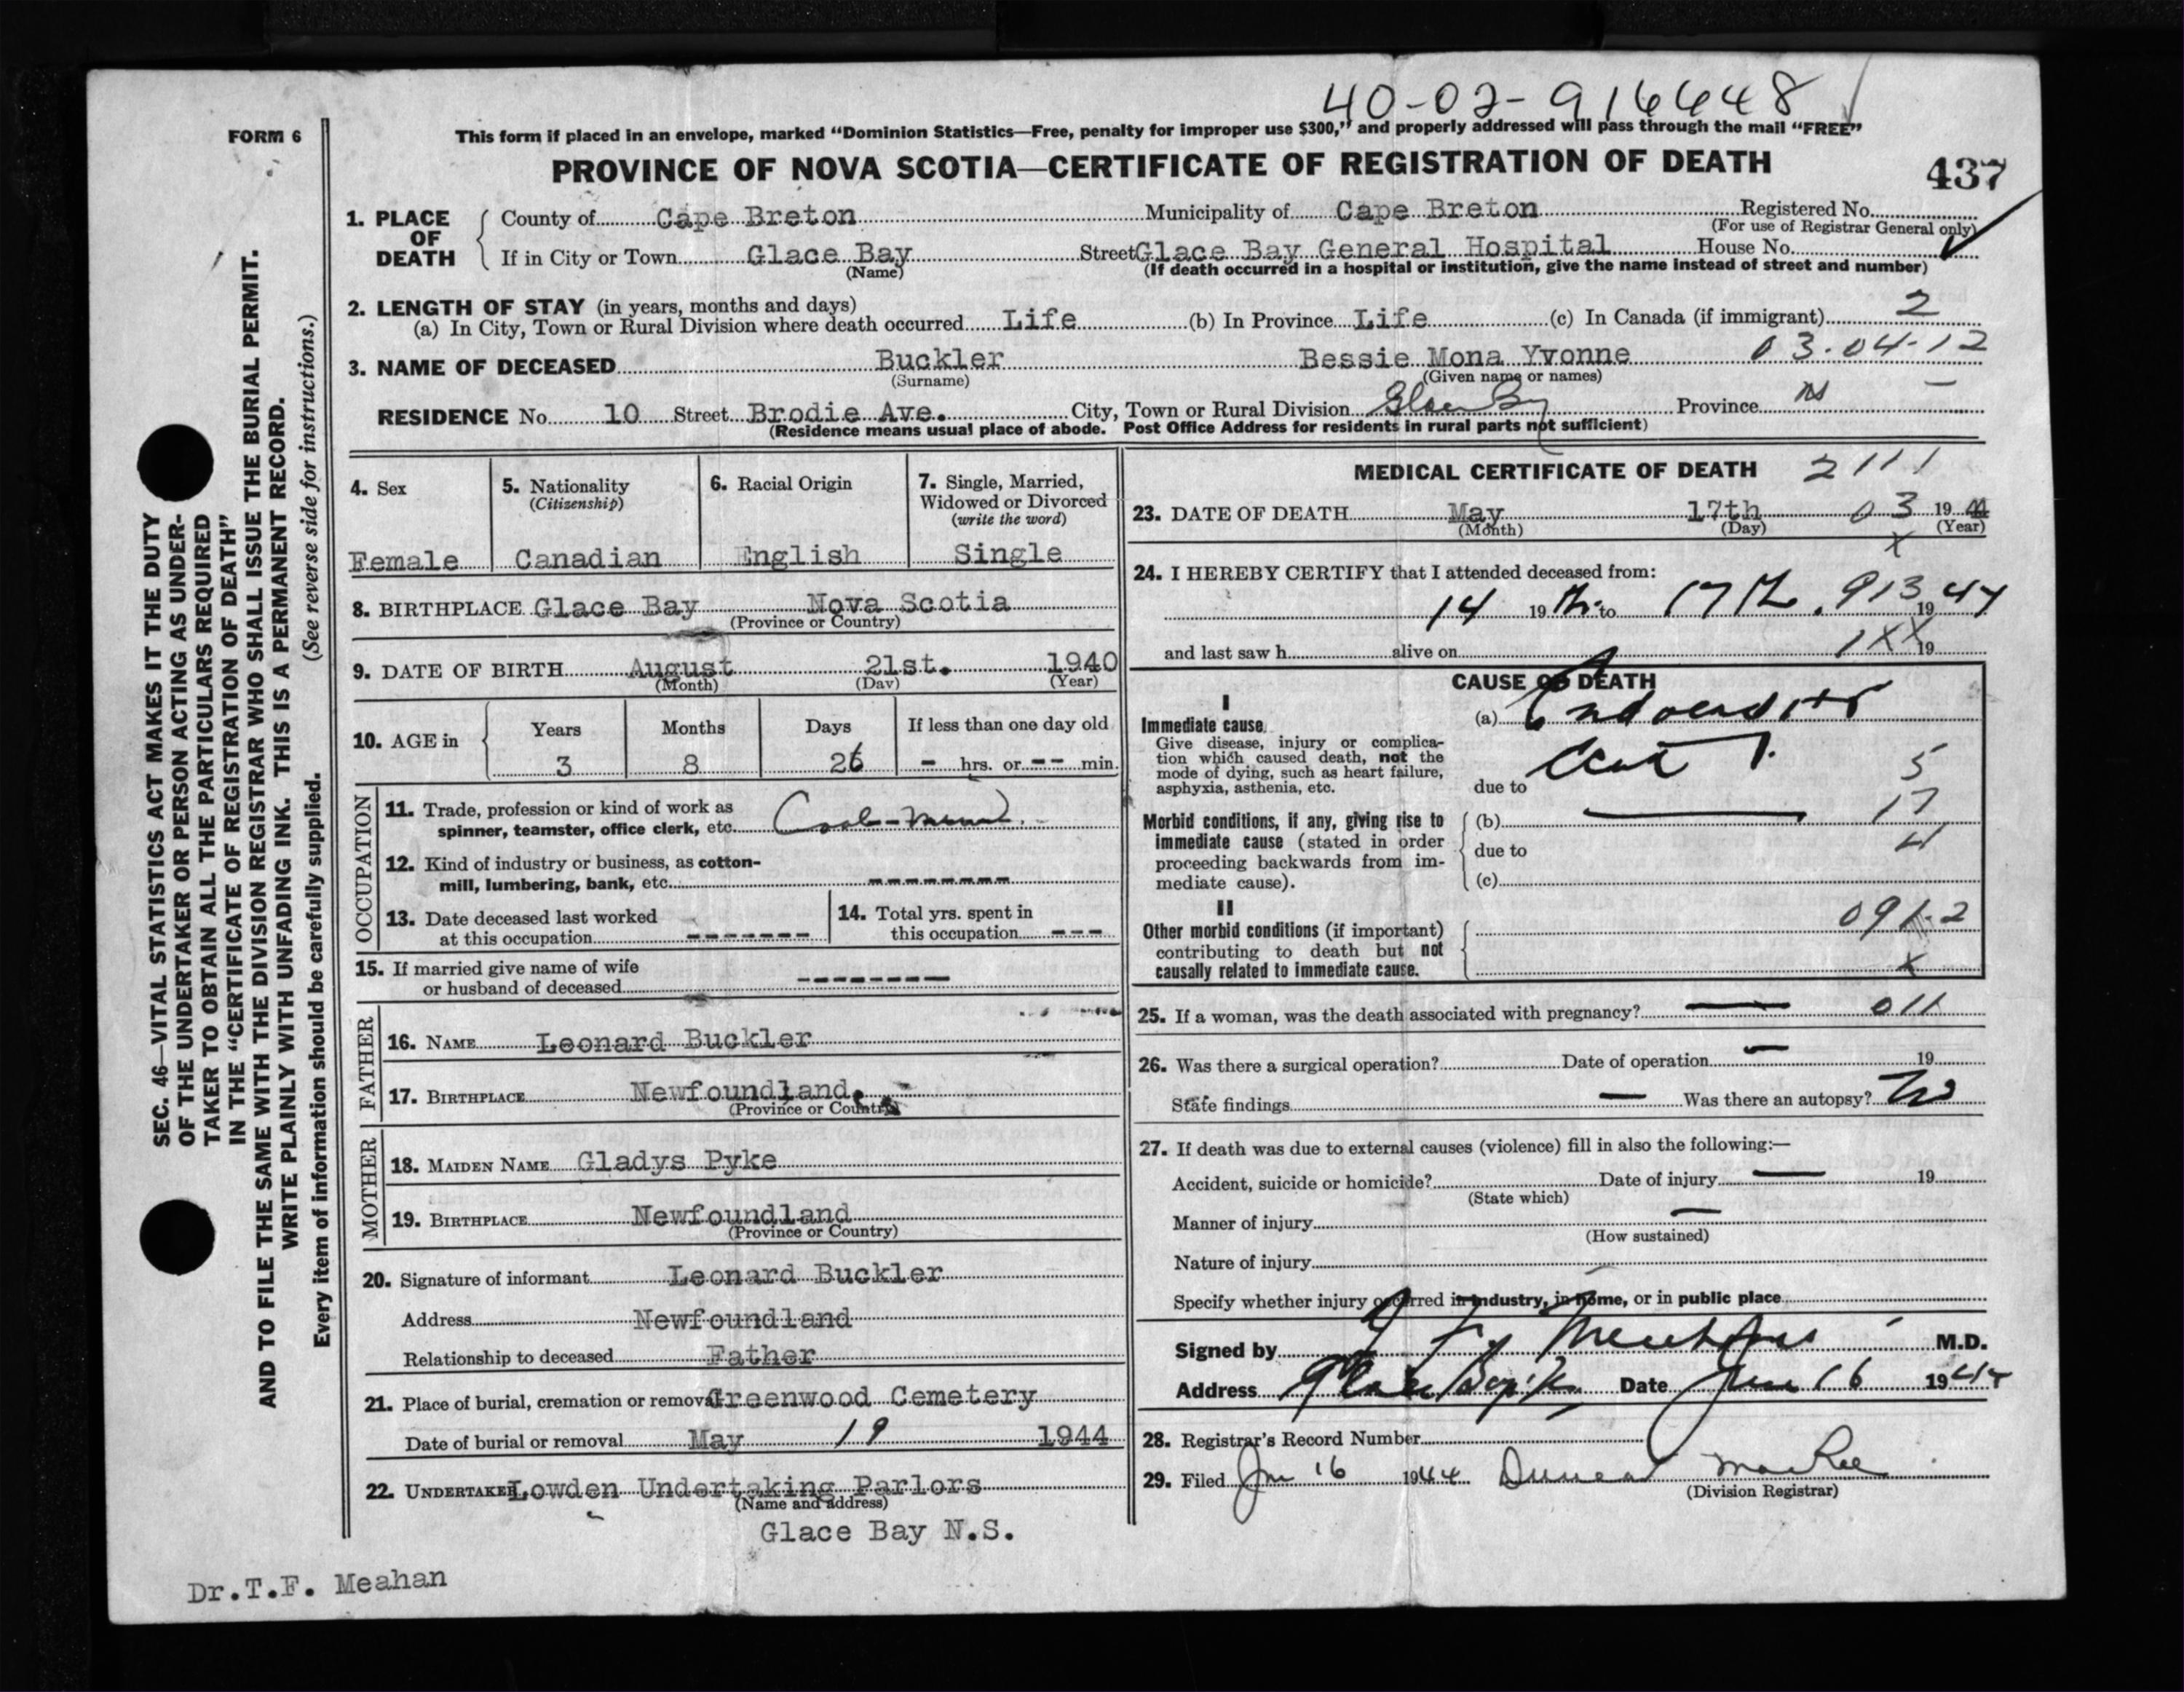 40-02-916448
FORM 6
This form if placed in an envelope, marked “Dominion Statistics—Free, penalty for improper use $300,” and properly addressed will pass through the mail “FREE”
PROVINCE OF NOVA SCOTIA—CERTIFICATE OF REGISTRATION OF DEATH
437
1. PLACE OF DEATH
County of Cape Breton Municipality of Cape Breton Registered No.
(For use of Registrar General only)
If in City or Town Glace Bay Street Glace Bay General Hospital House No.
(Name) (If death occurred in a hospital or institution, give the name instead of street and number)
2. LENGTH OF STAY (in years, months and days)
(a) In City, Town or Rural Division where death occurred Life (b) In Province Life (c) In Canada (if immigrant) 2
3. NAME OF DECEASED Buckler Bessie Mona Yvonne 03.04-12
(Surname) (Given name or names)
RESIDENCE No. 10 Street Brodie Ave. City, Town or Rural Division Glace Bay Province NS
(Residence means usual place of abode. Post Office Address for residents in rural parts not sufficient)
4. Sex
Female
5. Nationality
(Citizenship)
Canadian
6. Racial Origin
English
7. Single, Married,
Widowed or Divorced
(write the word)
Single
8. BIRTHPLACE Glace Bay Nova Scotia
(Province or Country)
9. DATE OF BIRTH August 21st. 1940
(Month) (Day) (Year)
10. AGE in
Years Months Days If less than one day old
3 8 26 - hrs. or -- min.
OCCUPATION
11. Trade, profession or kind of work as
spinner, teamster, office clerk, etc.
12. Kind of industry or business, as cotton-
mill, lumbering, bank, etc. --------
13. Date deceased last worked
at this occupation -------
14. Total yrs. spent in
this occupation ---
15. If married give name of wife
or husband of deceased --------
FATHER
16. NAME Leonard Buckler
17. BIRTHPLACE Newfoundland
(Province or Country)
MOTHER
18. MAIDEN NAME Gladys Pyke
19. BIRTHPLACE Newfoundland
(Province or Country)
20. Signature of informant Leonard Buckler
Address Newfoundland
Relationship to deceased Father
21. Place of burial, cremation or removal Greenwood Cemetery
Date of burial or removal May 19 1944
22. UNDERTAKER Lowden Undertaking Parlors
(Name and address)
Glace Bay N.S.
Dr.T.F. Meahan
MEDICAL CERTIFICATE OF DEATH 2111
23. DATE OF DEATH May 17th 03 1944
(Month) (Day) (Year)
X
24. I HEREBY CERTIFY that I attended deceased from:
14 19 to 17th 913 1944
and last saw h alive on 1XX 19
CAUSE OF DEATH
I
Immediate cause
Give disease, injury or complica-
tion which caused death, not the
mode of dying, such as heart failure,
asphyxia, asthenia, etc.
(a) Endocarditis
due to
5
Morbid conditions, if any, giving rise to
immediate cause (stated in order
proceeding backwards from im-
mediate cause).
(b) 17
due to 4
(c)
II
Other morbid conditions (if important)
contributing to death but not
causally related to immediate cause.
091.2
X
25. If a woman, was the death associated with pregnancy? — 011
26. Was there a surgical operation? Date of operation — 19
State findings — Was there an autopsy? No
27. If death was due to external causes (violence) fill in also the following:—
Accident, suicide or homicide? Date of injury — 19
(State which)
Manner of injury —
(How sustained)
Nature of injury
Specify whether injury occurred in industry, in home, or in public place
Signed by M.D.
Address Glace Bay Date June 16 1944
28. Registrar's Record Number
29. Filed Jun 16 1944 Duncan MacRae
(Division Registrar)
SEC. 46—VITAL STATISTICS ACT MAKES IT THE DUTY
OF THE UNDERTAKER OR PERSON ACTING AS UNDER-
TAKER TO OBTAIN ALL THE PARTICULARS REQUIRED
IN THE “CERTIFICATE OF REGISTRATION OF DEATH”
AND TO FILE THE SAME WITH THE DIVISION REGISTRAR WHO SHALL ISSUE THE BURIAL PERMIT.
WRITE PLAINLY WITH UNFADING INK. THIS IS A PERMANENT RECORD.
(See reverse side for instructions.)
Every item of information should be carefully supplied.